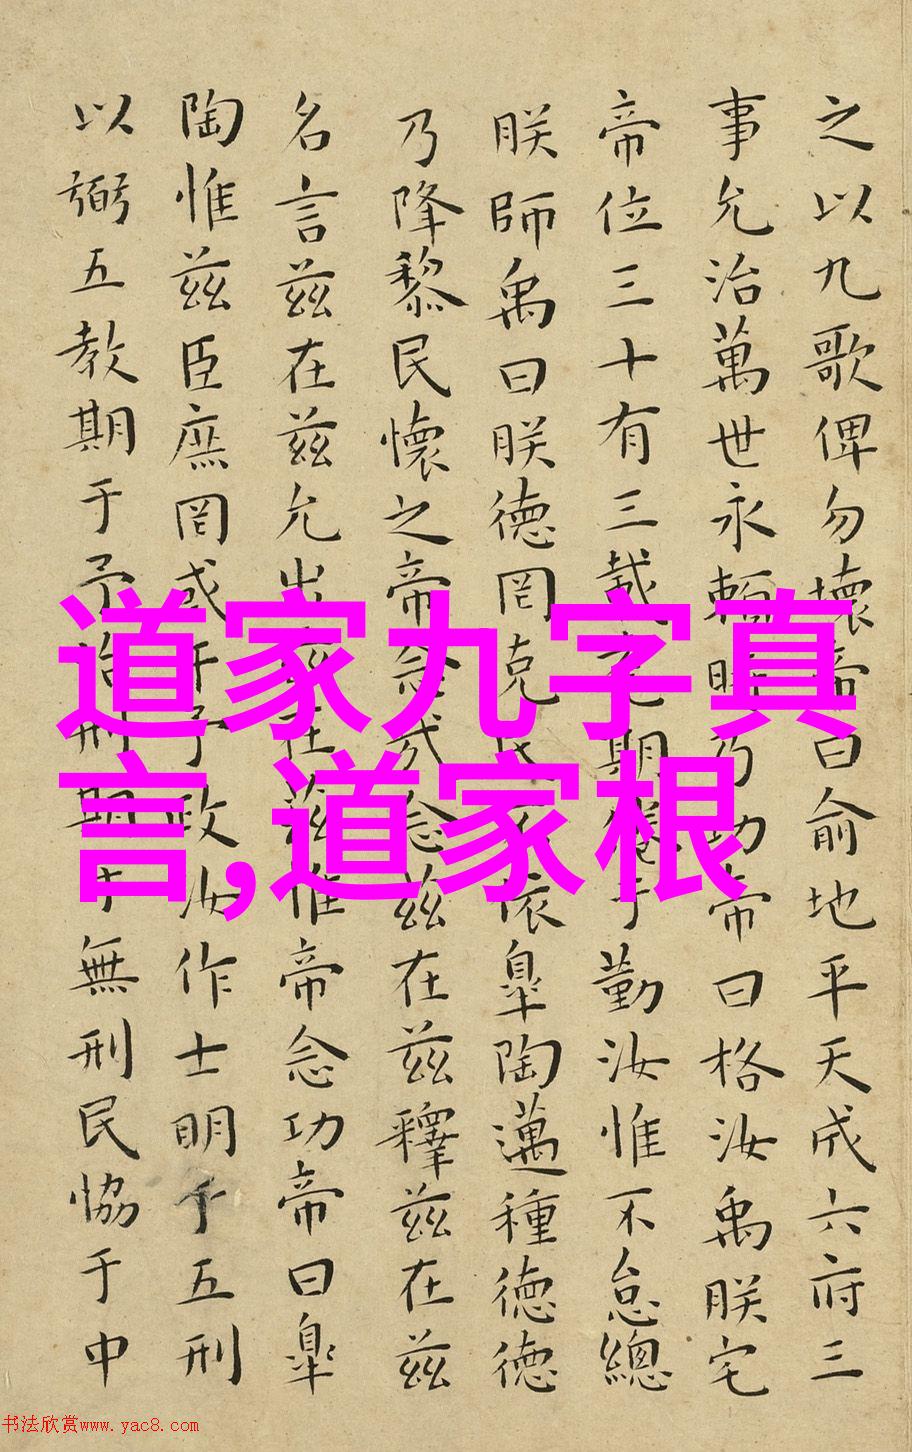 之以九歌俾勿壞帝曰俞地平天成六府三
事允治萬世永賴時乃功帝曰格汝禹朕宅
帝位三十有三載耄期倦于勤汝惟不怠總
朕師禹曰朕德罔克民不依皐陶邁種德德
乃降黎民懷之帝念哉念茲在茲釋茲在茲
名言茲在茲允出茲在茲惟帝念功帝曰皐
陶惟茲臣庶罔或干予政汝作士明于五刑
以弼五教期于予治刑期于無刑民協于中
道家九字真
言,道家根
书法欣赏www.yac8.com